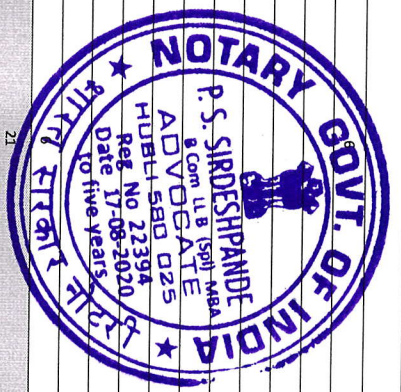 NOTARY GOVT. OF INDIA
P. S. SIRDESHPANDE
B Com LL B (Spl) MBA
ADVOCATE
HUBLI-580 025
Reg No 22394
Date 17-08-2020
to five years
भारत सरकार
21